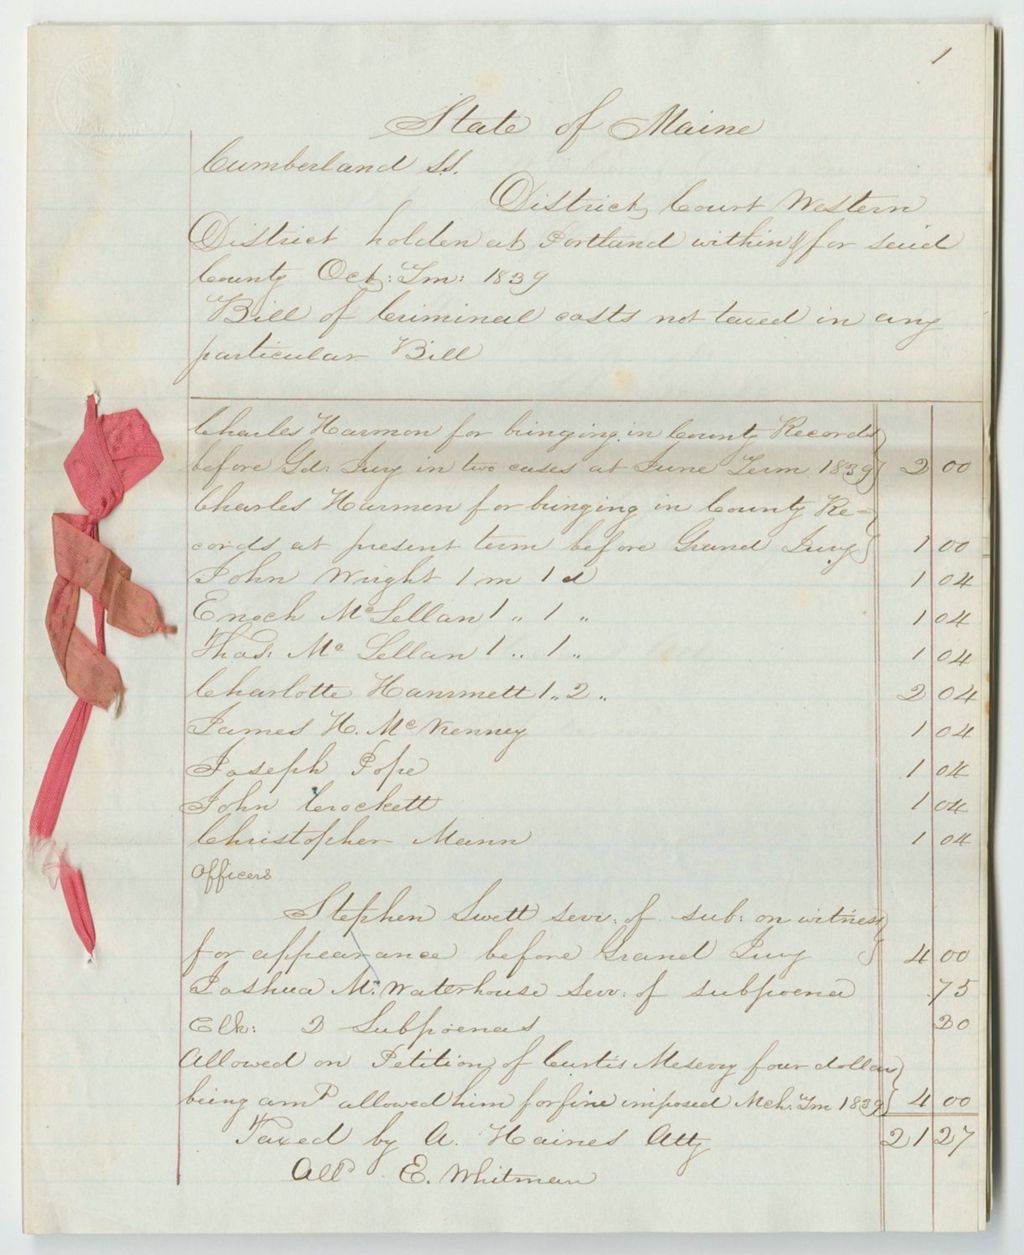 1
State of Maine
Cumberland SS.
District Court Western
District holden at Portland within & for said
County Oct: Tm: 1839
Bill of Criminal costs not taxed in any
particular Bill
Charles Harmon for bringing in County Records
before Gd: Jury in two cases at June Term 1839 2 00
Charles Harmon for bringing in County Re-
cords at present term before Grand Jury 1 00
John Wright 1 m 1 d 1 04
Enoch McLellan 1 " 1 " 1 04
Thos: Mc Lellan 1 " 1 " 1 04
Charlotte Hammett 1 " 2 " 2 04
James H. McKenney 1 04
Joseph Pope 1 04
John Crockett 1 04
Christopher Mann 1 04
Officers
Stephen Swett serv: of sub: on witness
for appearance before Grand Jury 4 00
Joshua M. Waterhouse serv: of subpoena .75
Clk: 2 Subpoenas 20
Allowed on Petition of Curtis Meservy four dollars
being amt allowed him for fine imposed Mch. Tm 1839 4 00
Taxed by A. Haines Atty 21 27
All'd E. Whitman